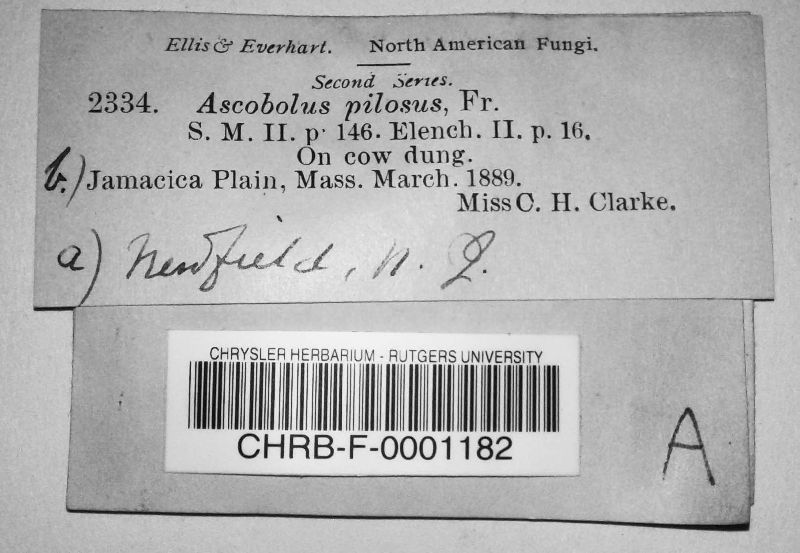 Ellis & Everhart. North American Fungi.
Second Series.
2334. Ascobolus pilosus, Fr.
S. M. II. p. 146. Elench. II. p. 16.
On cow dung.
b.) Jamacica Plain, Mass. March. 1889.
Miss C. H. Clarke.
a) Newfield, N. J.
CHRYSLER HERBARIUM - RUTGERS UNIVERSITY
CHRB-F-0001182
A